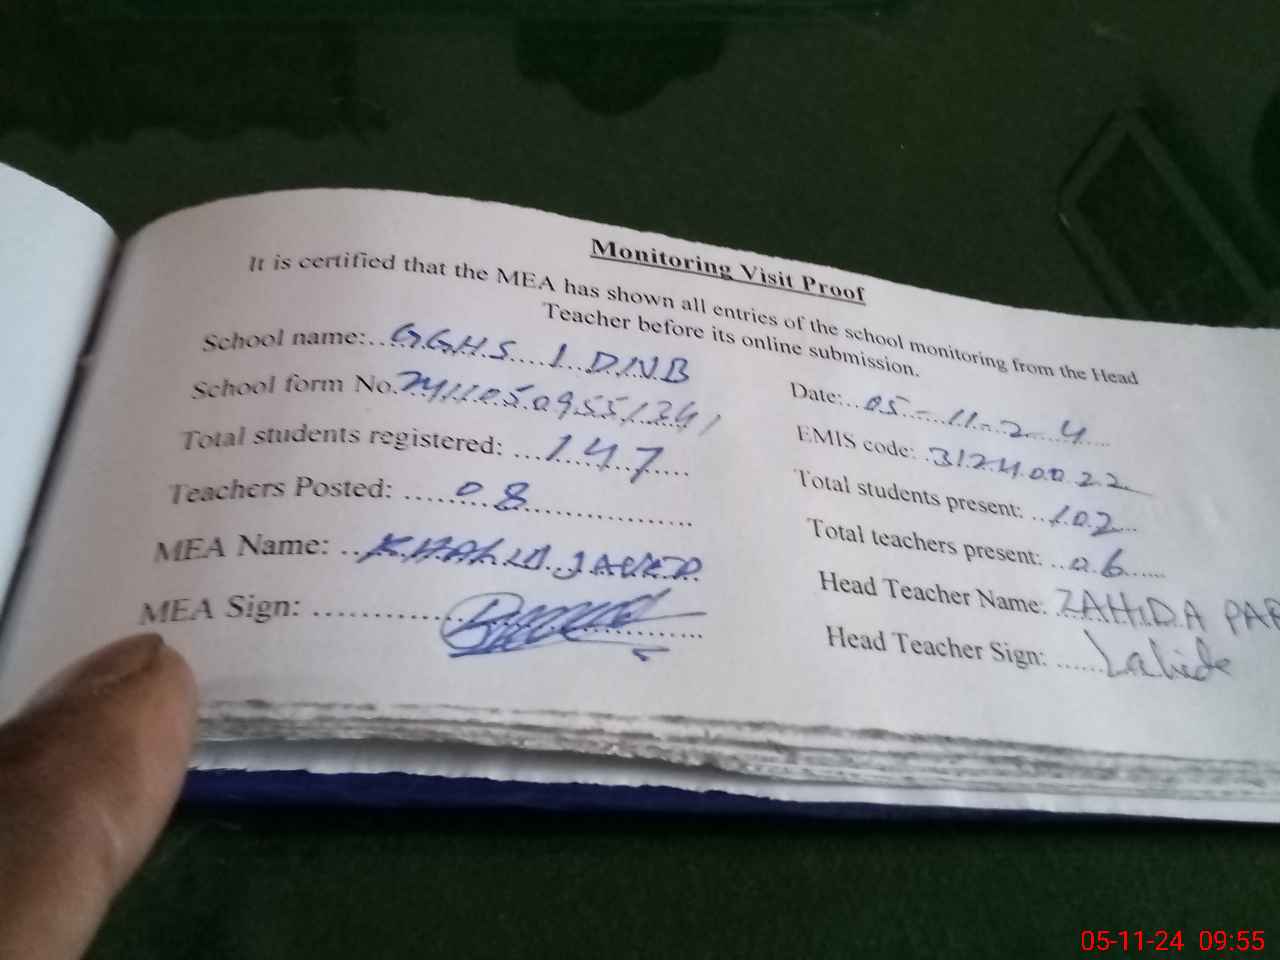 Monitoring Visit Proof
It is certified that the MEA has shown all entries of the school monitoring from the Head
Teacher before its online submission.
School name: G.G.H.S. 1. D.N.B
Date: 05-11-24
School form No. 2411050955134
EMIS code: 31240022
Total students registered: 147
Total students present: 102
Teachers Posted: 08
Total teachers present: 06
MEA Name: KHALID JAVED
Head Teacher Name: ZAHIDA PAR
MEA Sign:
Head Teacher Sign: Zahida
05-11-24 09:55